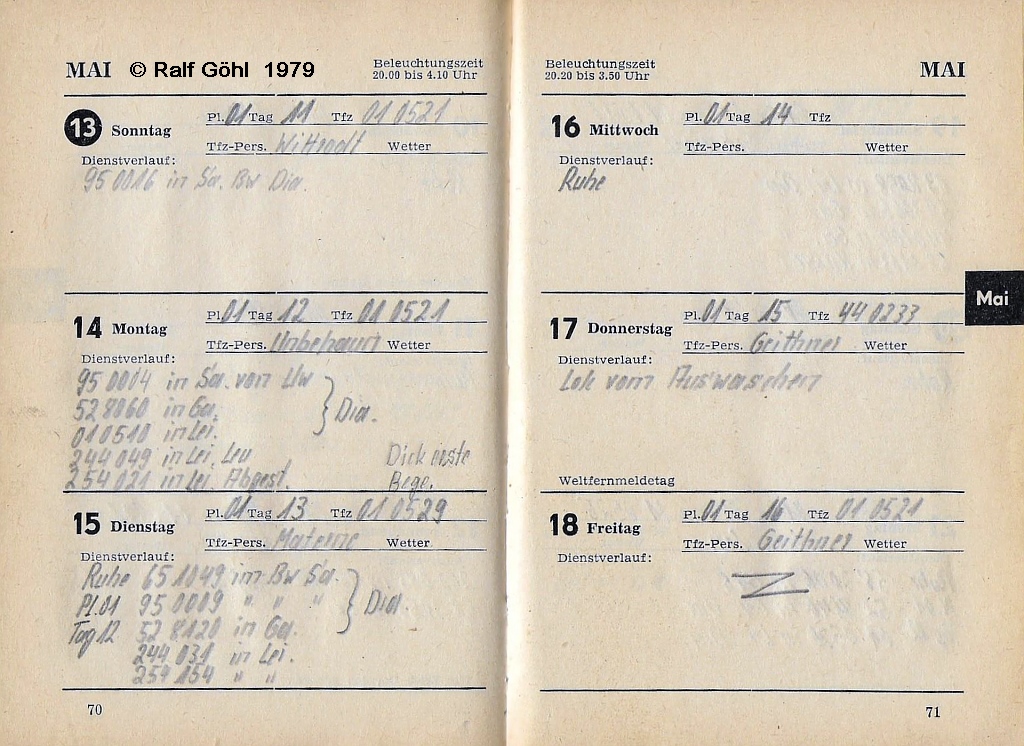 MAI © Ralf Göhl 1979
Beleuchtungszeit
20.00 bis 4.10 Uhr
13 Sonntag
Pl. 01 Tag 11 Tfz 01 0521
Tfz-Pers. Wittstadt Wetter
Dienstverlauf:
95 0016 in Sa. Bw Dia.
14 Montag
Pl. 01 Tag 12 Tfz 01 0521
Tfz-Pers. Unbehaun Wetter
Dienstverlauf:
95 0004 in Sa. von Uw
52 8060 in Gö. } Dia.
01 0510 in Lei.
244 049 in Lei. Leu Dick erste
254 021 in Lei. Abgest. Bege.
15 Dienstag
Pl. 01 Tag 13 Tfz 01 0529
Tfz-Pers. Materne Wetter
Dienstverlauf:
Ruhe 65 1049 im Bw Sa.
Pl.01 95 0009 " " " } Dia
Tag 12 52 8120 in Gö.
244 031 in Lei.
259 154 " "
70
Beleuchtungszeit
20.20 bis 3.50 Uhr
MAI
16 Mittwoch
Pl. 01 Tag 14 Tfz
Tfz-Pers. Wetter
Dienstverlauf:
Ruhe
Mai
17 Donnerstag
Pl. 01 Tag 15 Tfz 44 0233
Tfz-Pers. Geithner Wetter
Dienstverlauf:
Lok vom Auswaschen
Weltfernmeldetag
18 Freitag
Pl. 01 Tag 16 Tfz 01 0521
Tfz-Pers. Geithner Wetter
Dienstverlauf:
71